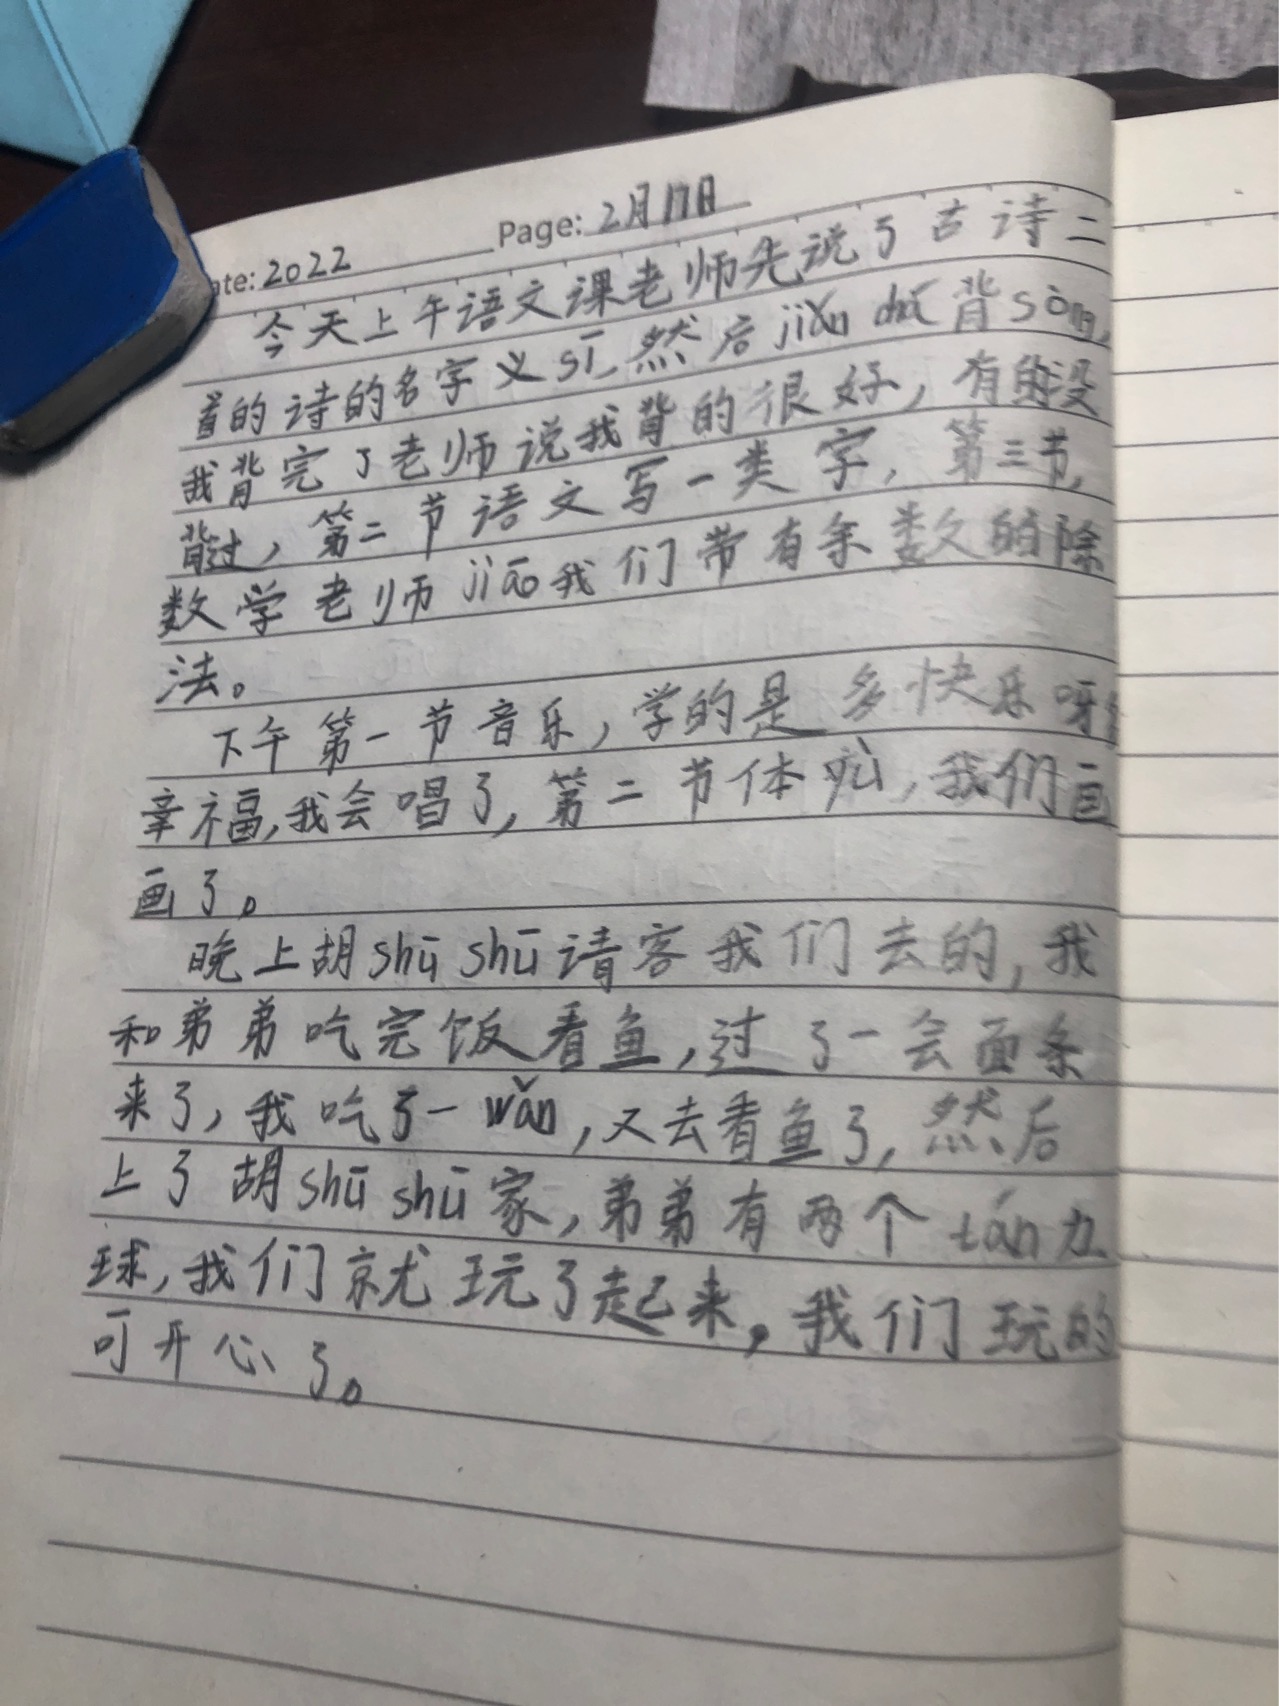 ate: 2022 Page: 2月17日
今天上午语文课老师先说了古诗二
首的诗的名字义sī,然后jiǎn dū背sòng,
我背完了老师说我背的很好，有的没
背过，第二节语文写一类字，第三节,
数学老师jiāo我们带有余数的除
法。
下午第一节音乐，学的是多快乐呀
幸福,我会唱了,第二节体yù,我们画
画了。
晚上胡shū shū请客我们去的,我
和弟弟吃完饭看鱼,过了一会面条
来了,我吃了一wǎn,又去看鱼了,然后
上了胡shū shū家,弟弟有两个tán力
球,我们就玩了起来。我们玩的
可开心了。